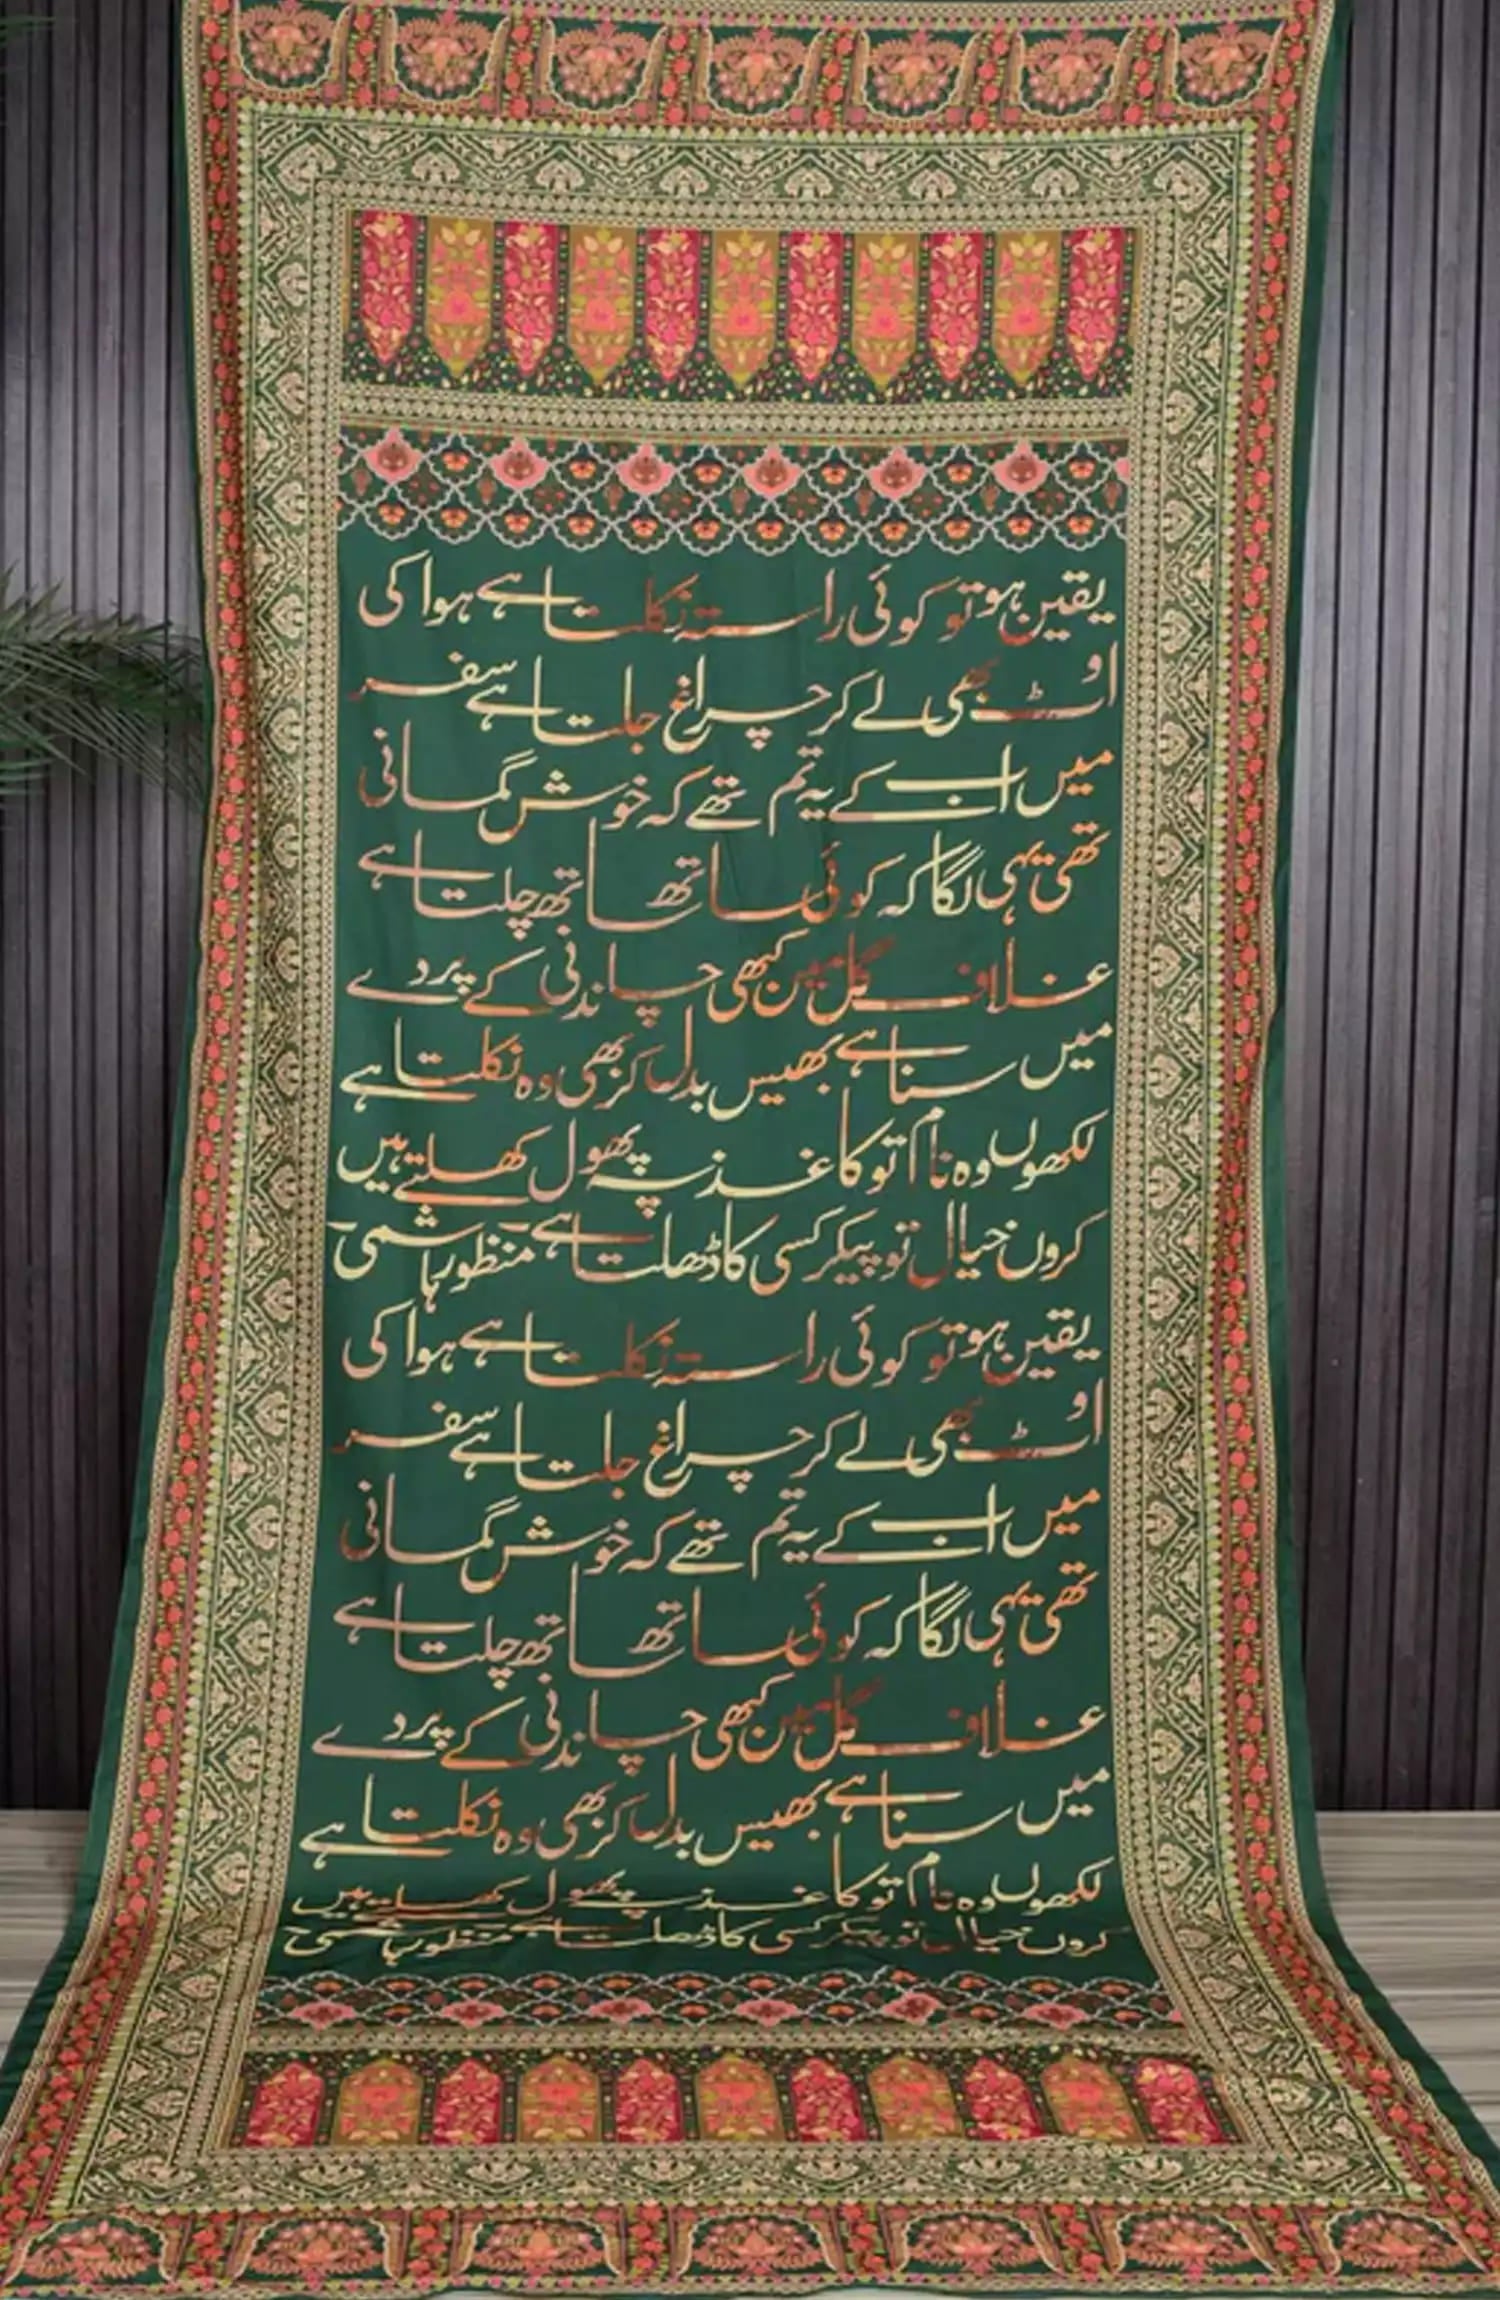 یقین ہو تو کوئی راستہ نکلتا ہے ہوا کی
اوٹ بھی لے کر چراغ جلتا ہے سفر
میں اب کے یہ تم تھے کہ خوش گمانی
تھی یہی لگا کہ کوئی ساتھ ساتھ چلتا ہے
غلاف گل میں کبھی چاندنی کے پردے
میں سنا ہے بھیس بدل کر بھی وہ نکلتا ہے
لکھوں وہ نام تو کاغذ پہ پھول کھلتے ہیں
کروں خیال تو پیکر کسی کا ڈھلتا ہے - منظور ہاشمی -
یقین ہو تو کوئی راستہ نکلتا ہے ہوا کی
اوٹ بھی لے کر چراغ جلتا ہے سفر
میں اب کے یہ تم تھے کہ خوش گمانی
تھی یہی لگا کہ کوئی ساتھ ساتھ چلتا ہے
غلاف گل میں کبھی چاندنی کے پردے
میں سنا ہے بھیس بدل کر بھی وہ نکلتا ہے
لکھوں وہ نام تو کاغذ پہ پھول کھلتے ہیں
کروں خیال تو پیکر کسی کا ڈھلتا ہے - منظور ہاشمی